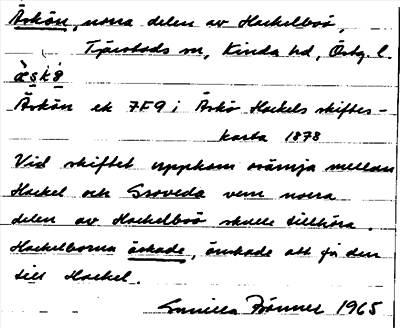 Äskön, norra delen av Hackelboö,
Tjärstads sn, Kinda hd, Östg. l.
Äskön ek 7F9 i Äskö Hackels skiftes-
karta 1878
Vid skiftet uppkom osämja mellan
Hackel och Groveda vem norra
delen av Hackelboö skulle tillhöra.
Hackelborna äskade, önskade att få den
till Hackel.
Gunilla Brönner 1965